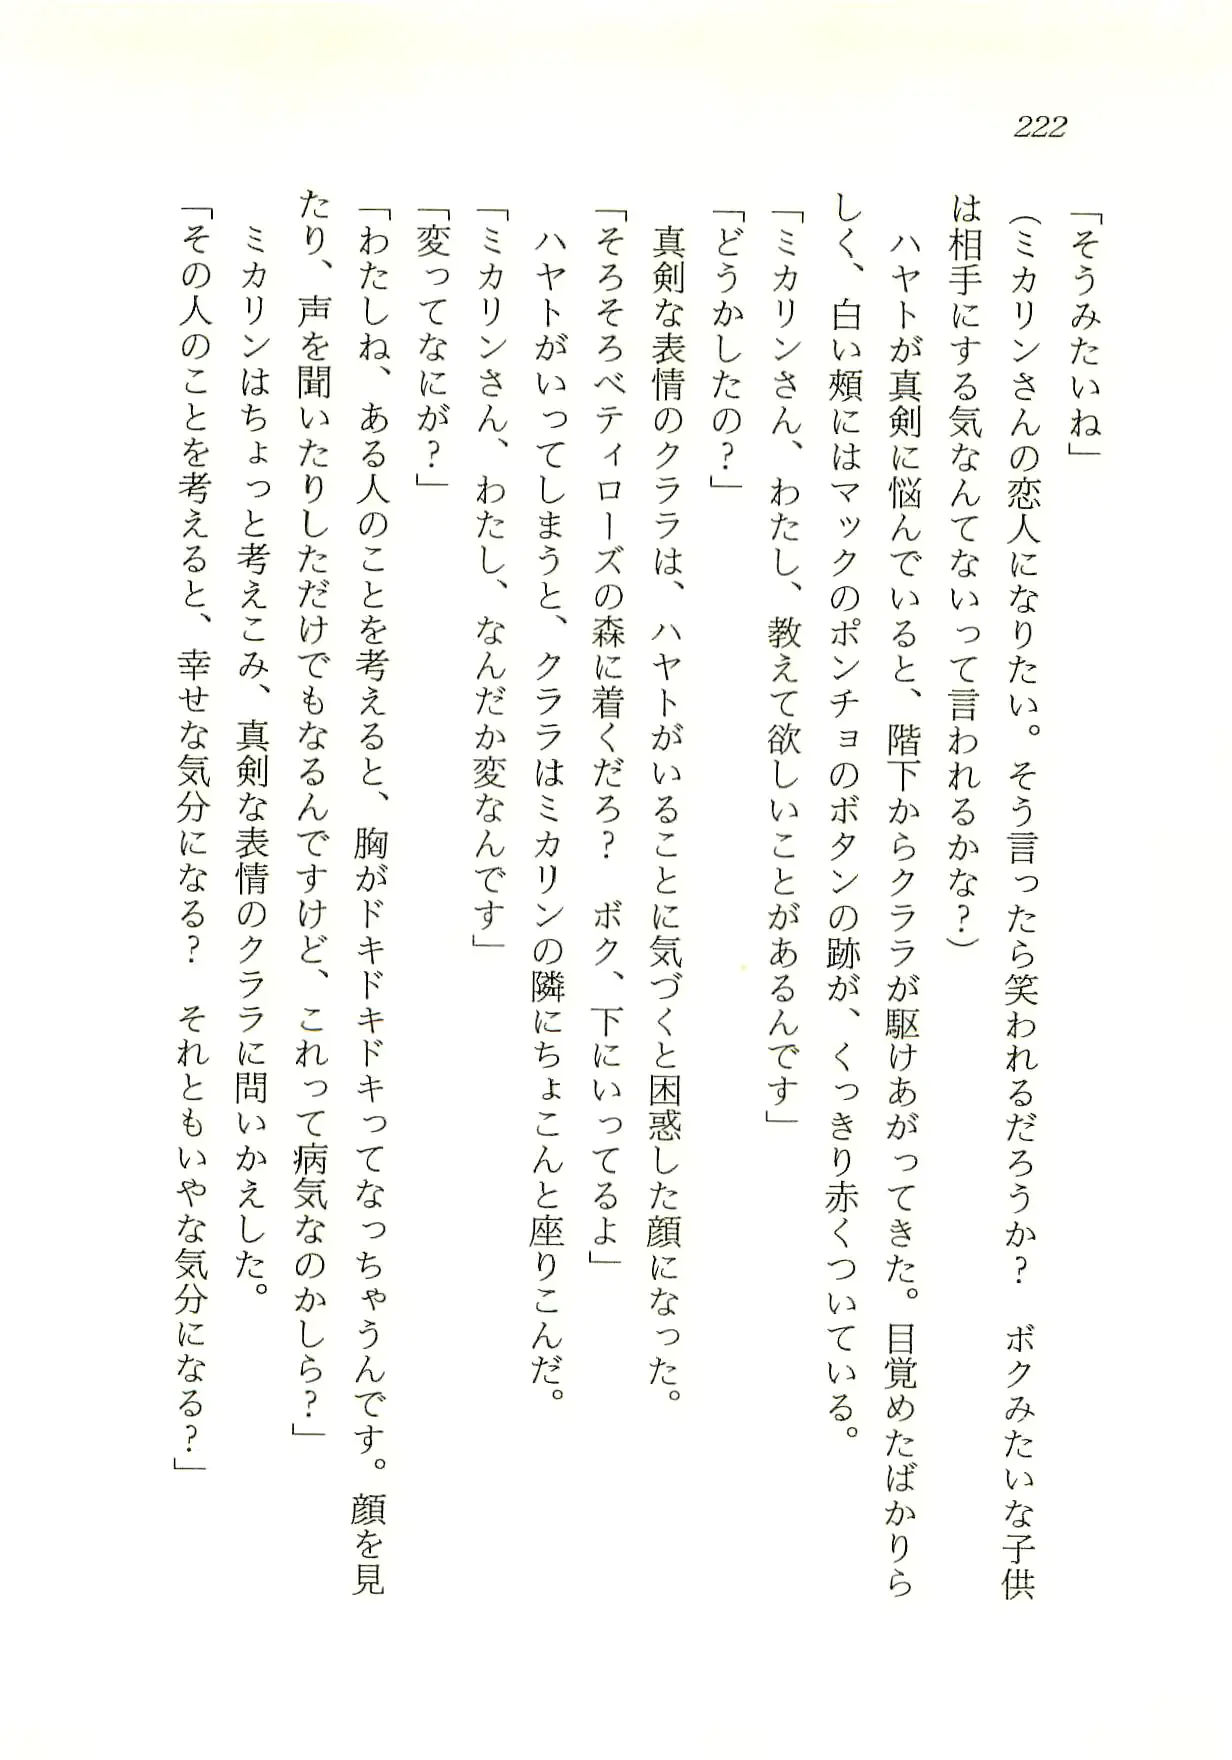 222
「そうみたいね」
（ミカリンさんの恋人になりたい。そう言ったら笑われるだろうか？　ボクみたいな子供
は相手にする気なんてないって言われるかな？）
　ハヤトが真剣に悩んでいると、階下からクララが駆けあがってきた。目覚めたばかりら
しく、白い頰にはマックのポンチョのボタンの跡が、くっきり赤くついている。
「ミカリンさん、わたし、教えて欲しいことがあるんです」
「どうかしたの？」
　真剣な表情のクララは、ハヤトがいることに気づくと困惑した顔になった。
「そろそろベティローズの森に着くだろ？　ボク、下にいってるよ」
　ハヤトがいってしまうと、クララはミカリンの隣にちょこんと座りこんだ。
「ミカリンさん、わたし、なんだか変なんです」
「変ってなにが？」
「わたしね、ある人のことを考えると、胸がドキドキドキってなっちゃうんです。顔を見
たり、声を聞いたりしただけでもなるんですけど、これって病気なのかしら？」
　ミカリンはちょっと考えこみ、真剣な表情のクララに問いかえした。
「その人のことを考えると、幸せな気分になる？　それともいやな気分になる？」